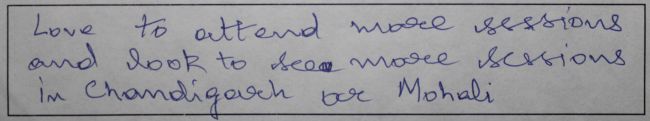 Love to attend more sessions
and look to see more sessions
in Chandigarh or Mohali